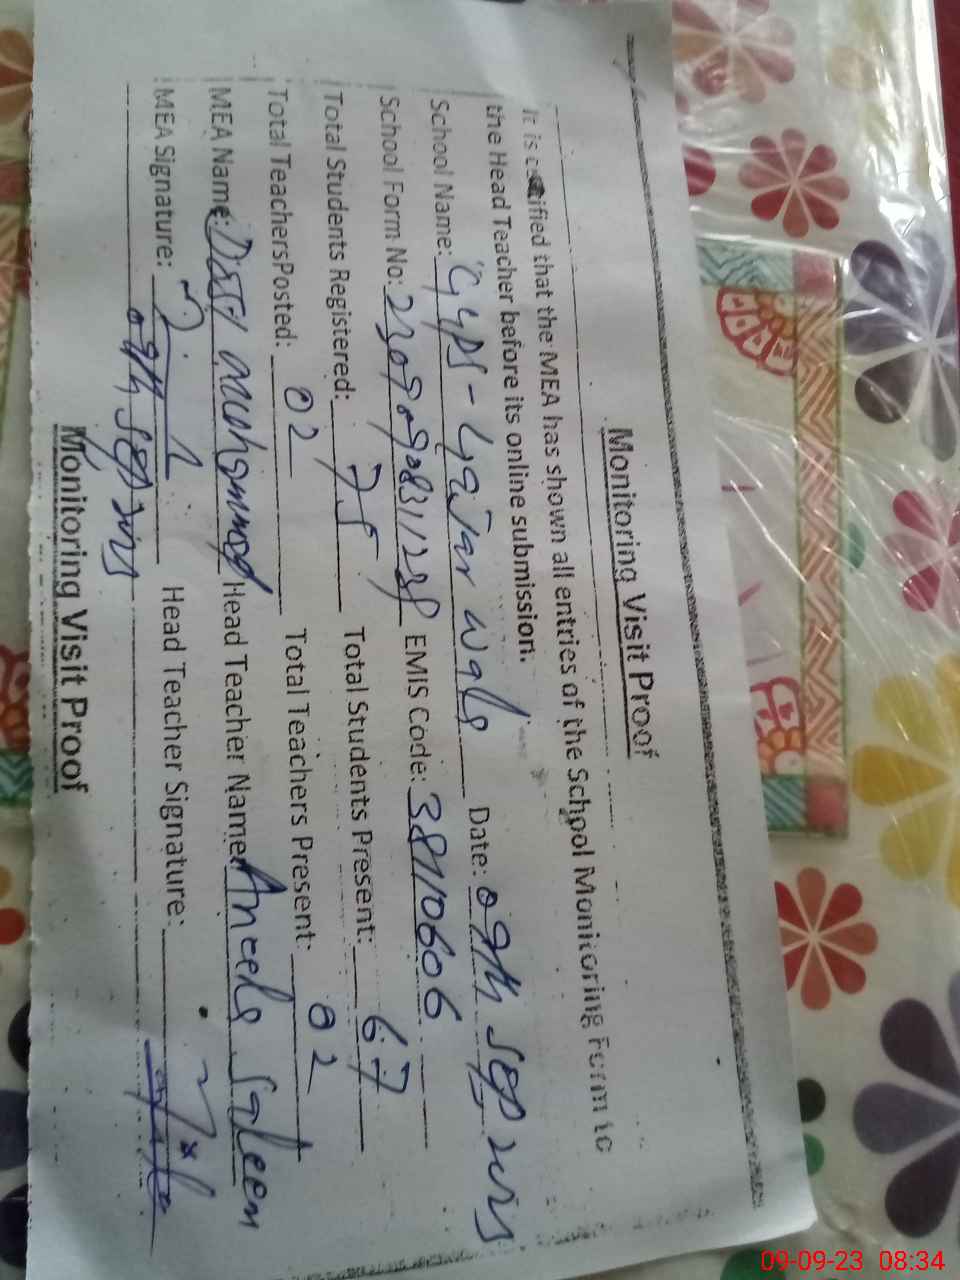 Monitoring Visit Proof
It is certified that the MEA has shown all entries of the School Monitoring Form to
the Head Teacher before its online submission.
School Name: GGPS - Gajar wala Date: 09th Sep 2023
School Form No: EMIS Code: 38110606
Total Students Registered: 75 Total Students Present: 67
Total TeachersPosted: 02 Total Teachers Present: 02
MEA Name: Muhammad Head Teacher Name: Aneela Saleem
MEA Signature: Head Teacher Signature:
09th Sep 2023
Monitoring Visit Proof
09-09-23 08:34